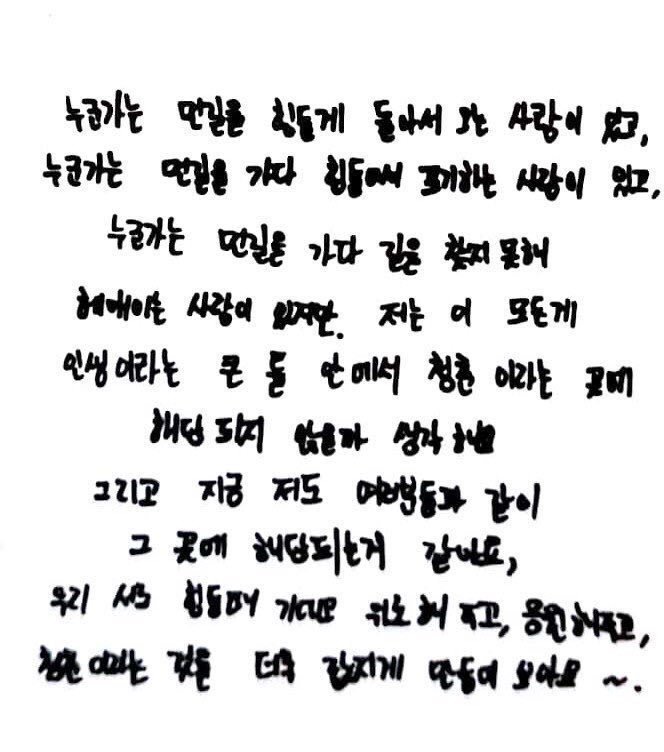 누군가는 먼길을 힘들게 돌아서 오는 사람이 있고,
누군가는 먼길을 가다 힘들어서 포기하는 사람이 있고,
누군가는 먼길을 가다 길을 찾지 못해
헤매이는 사람이 있지만. 저는 이 모든게
인생이라는 큰 틀 안에서 청춘 이라는 곳에
해답 되지 않을까 생각해요
그리고 지금 저도 여러분들과 같이
그 곳에 해답되는거 같아요,
우리 서로 힘들때 기대고 위로 해 주고, 응원해주고,
청춘 이라는 것을 더욱 값지게 만들어 보아요 ~.